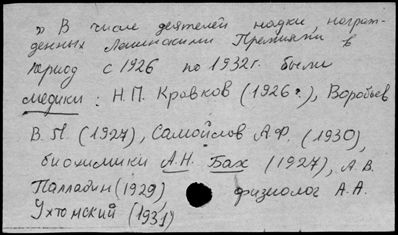 » В числе деятелей науки, награж-
денных Ленинскими Премиями в
период с 1926 по 1932 г. были
медики: Н.П. Кравков (1926 г.), Воробьев
В.П. (1927), Самойлов А.Ф. (1930),
биохимики А.Н. Бах (1927), А.В.
Палладин (1929), физиолог А.А.
Ухтомский (1931)